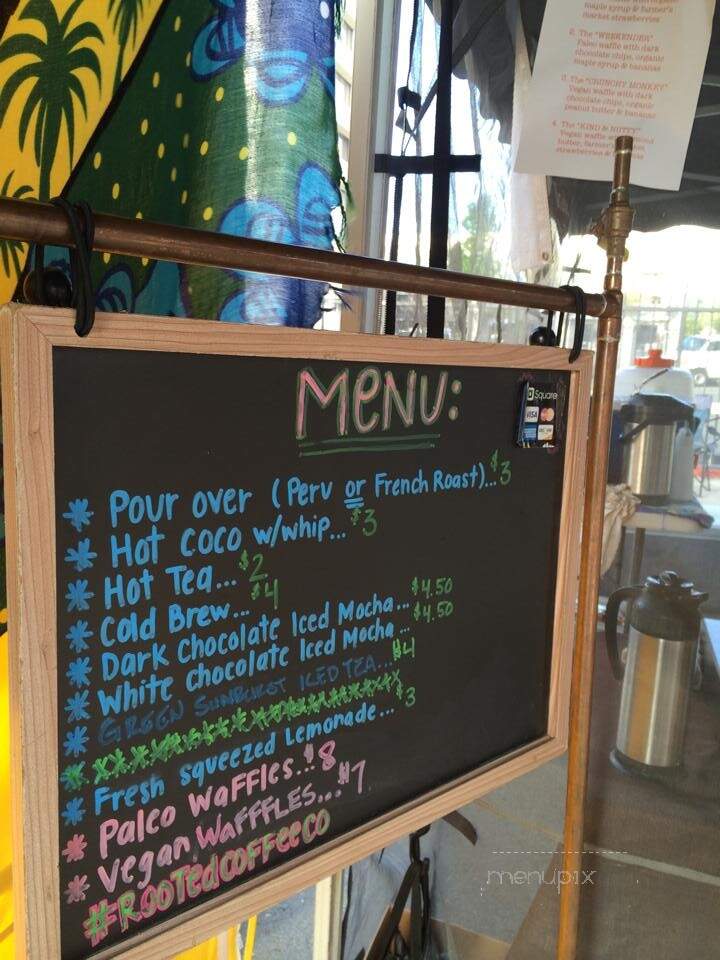 maple syrup & farmer's
market strawberries
2. The "WEEKENDER"
Paleo waffle with dark
chocolate chips, organic
maple syrup & bananas
3. The "CRUNCHY MONKEY"
Vegan waffle with dark
chocolate chips, organic
peanut butter & bananas
4. The "KIND & NUTTY"
Vegan waffle
butter, farmer's
strawberries &
MENU:
Square
VISA
* Pour over (Perv or French Roast)...$3
* Hot coco w/whip...$3
* Hot Tea...$2
* Cold Brew...$4
* Dark Chocolate Iced Mocha...$4.50
* White chocolate Iced Mocha...$4.50
* GREEN SUNBURST ICED TEA...$4
* Fresh squeezed Lemonade...$3
* Palco Waffles...$8
* Vegan WaFFFLES...$7
#RooTedcoffeeco
menupix